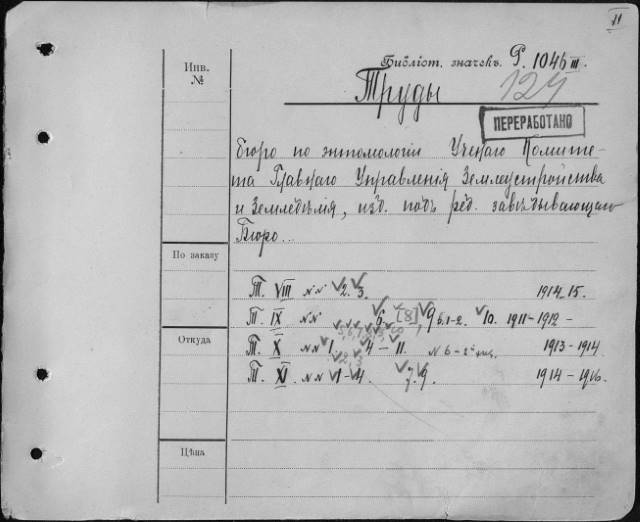 II
Инв.
№
Библіот. значекъ. Р. 1046 III.
124
Труды
ПЕРЕРАБОТАНО
Бюро по энтомологіи Ученаго Комите-
та Главнаго Управленія Землеустройства
и Земледѣлія, изд. подъ ред. завѣдывающаго
Бюро...
По заказу
Т. VIII №№ 2. 3. 1914-15.
Т. IX №№ 6. [8], 9 б. 1-2. 10. 1911-1912-
Откуда
Т. X №№ 1 4-11. № 6-2ой 1913-1914
Т. XI №№ 1-4. 7. 9. 1914-1916.
Цѣна